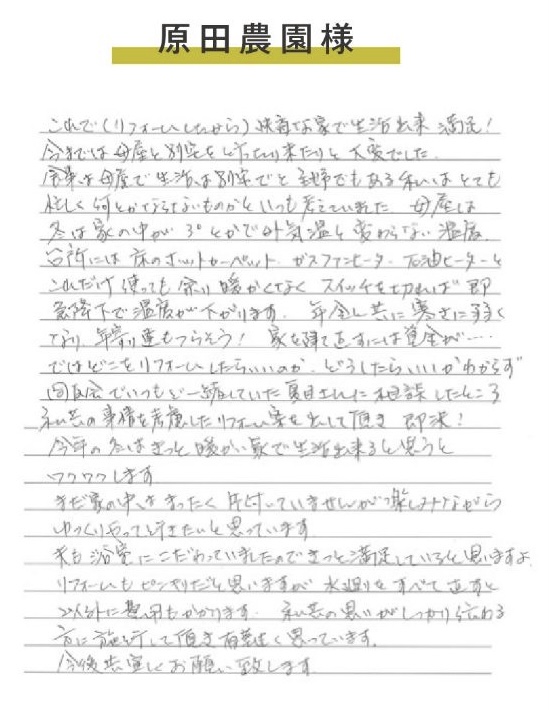 原田農園様
これで(リフォームしたから)快適な家で生活出来 満足!
今までは母屋と別宅を行ったり来たりと 大変でした。
食事は母屋で 生活は別宅でと 主婦でもある私は とても
忙しく 何とかならないものかと いつも考えていました。母屋は
冬は家の中が 3°とかで外気温と変わらない温度。
台所には 床のホットカーペット ガスファンヒーター 石油ヒーターと
これだけ使っても 余り暖かくなく スイッチを切れば 即
急降下で温度が下がります。年令と共に寒さに弱く
なり 年寄り達もつらそう! 家を建て直すには資金が‥‥
ではどこをリフォームしたらいいのか、どうしたらいいかわからず
同友会でいつもご一緒していた 夏目さんに相談したところ
私共の事情を考慮したリフォーム案を出して頂き 即決!
今年の冬はきっと 暖かい家で生活出来ると思うと
ワクワクします
まだ家の中はまったく 片付いていませんが 楽しみながら
ゆっくりやって行きたいと思っています
夫も浴室にこだわっていましたので きっと満足していると思いますよ
リフォームもピンキリだと思いますが 水廻りをすべて直すと
以外に費用もかかります。私共の思いがしっかり伝わる
方に施行して頂き 有難く思っています。
今後共宜しくお願い致します